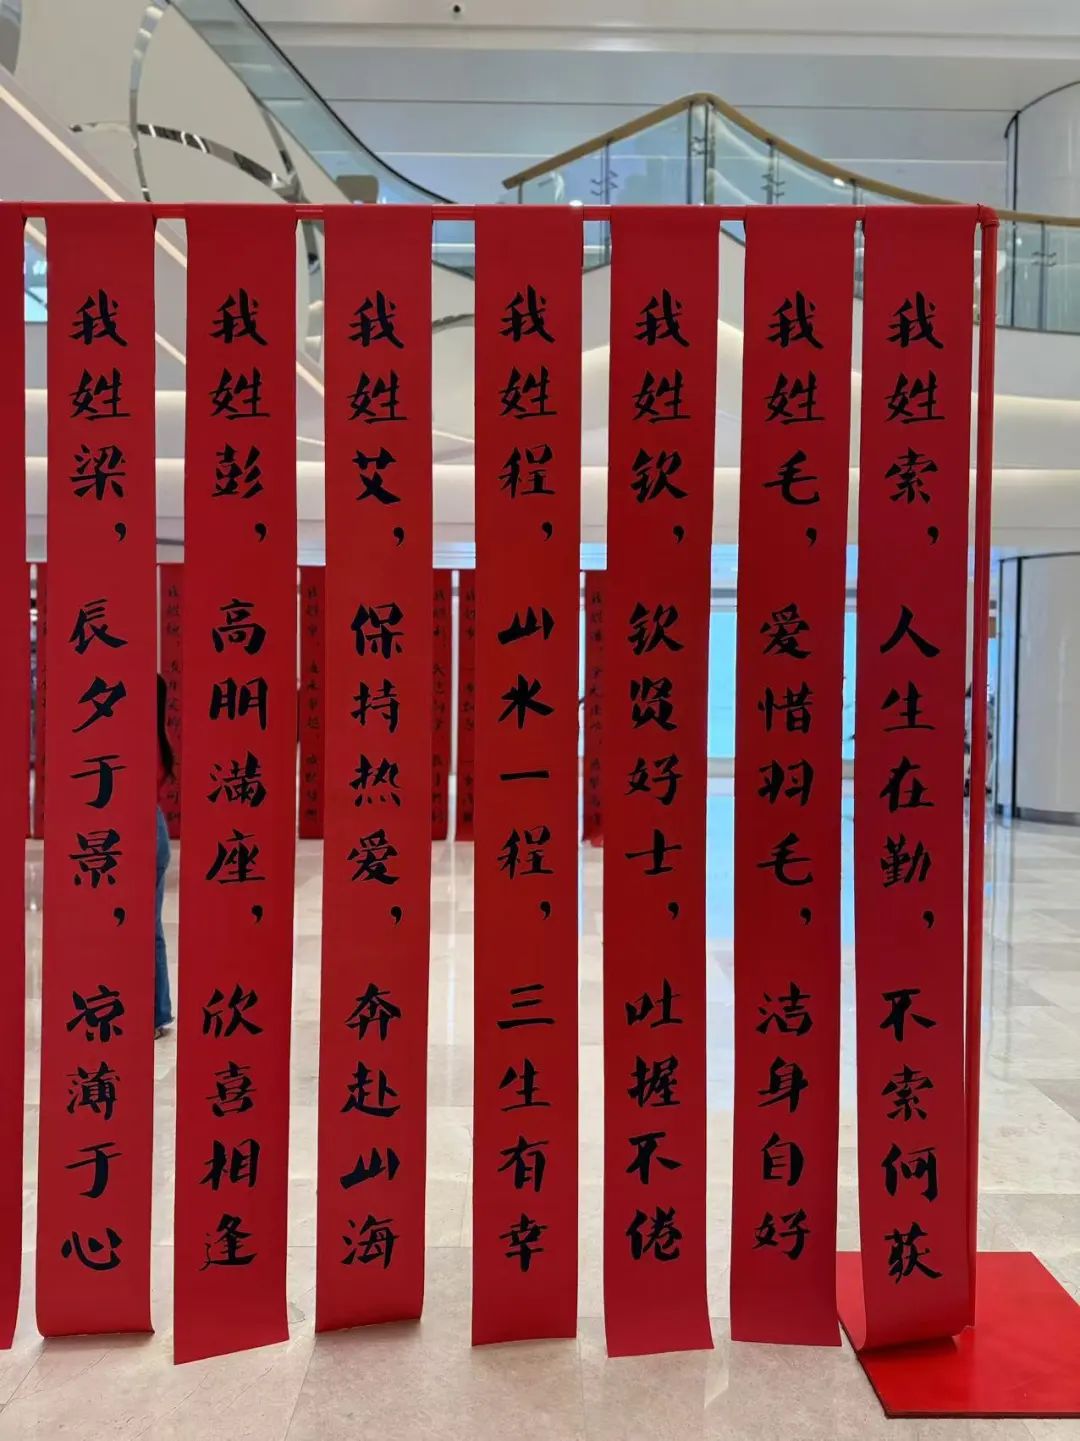 我姓梁，辰夕于景，凉薄于心
我姓彭，高朋满座，欣喜相逢
我姓艾，保持热爱，奔赴山海
我姓程，山水一程，三生有幸
我姓钦，钦贤好士，吐握不倦
我姓毛，爱惜羽毛，洁身自好
我姓索，人生在勤，不索何获